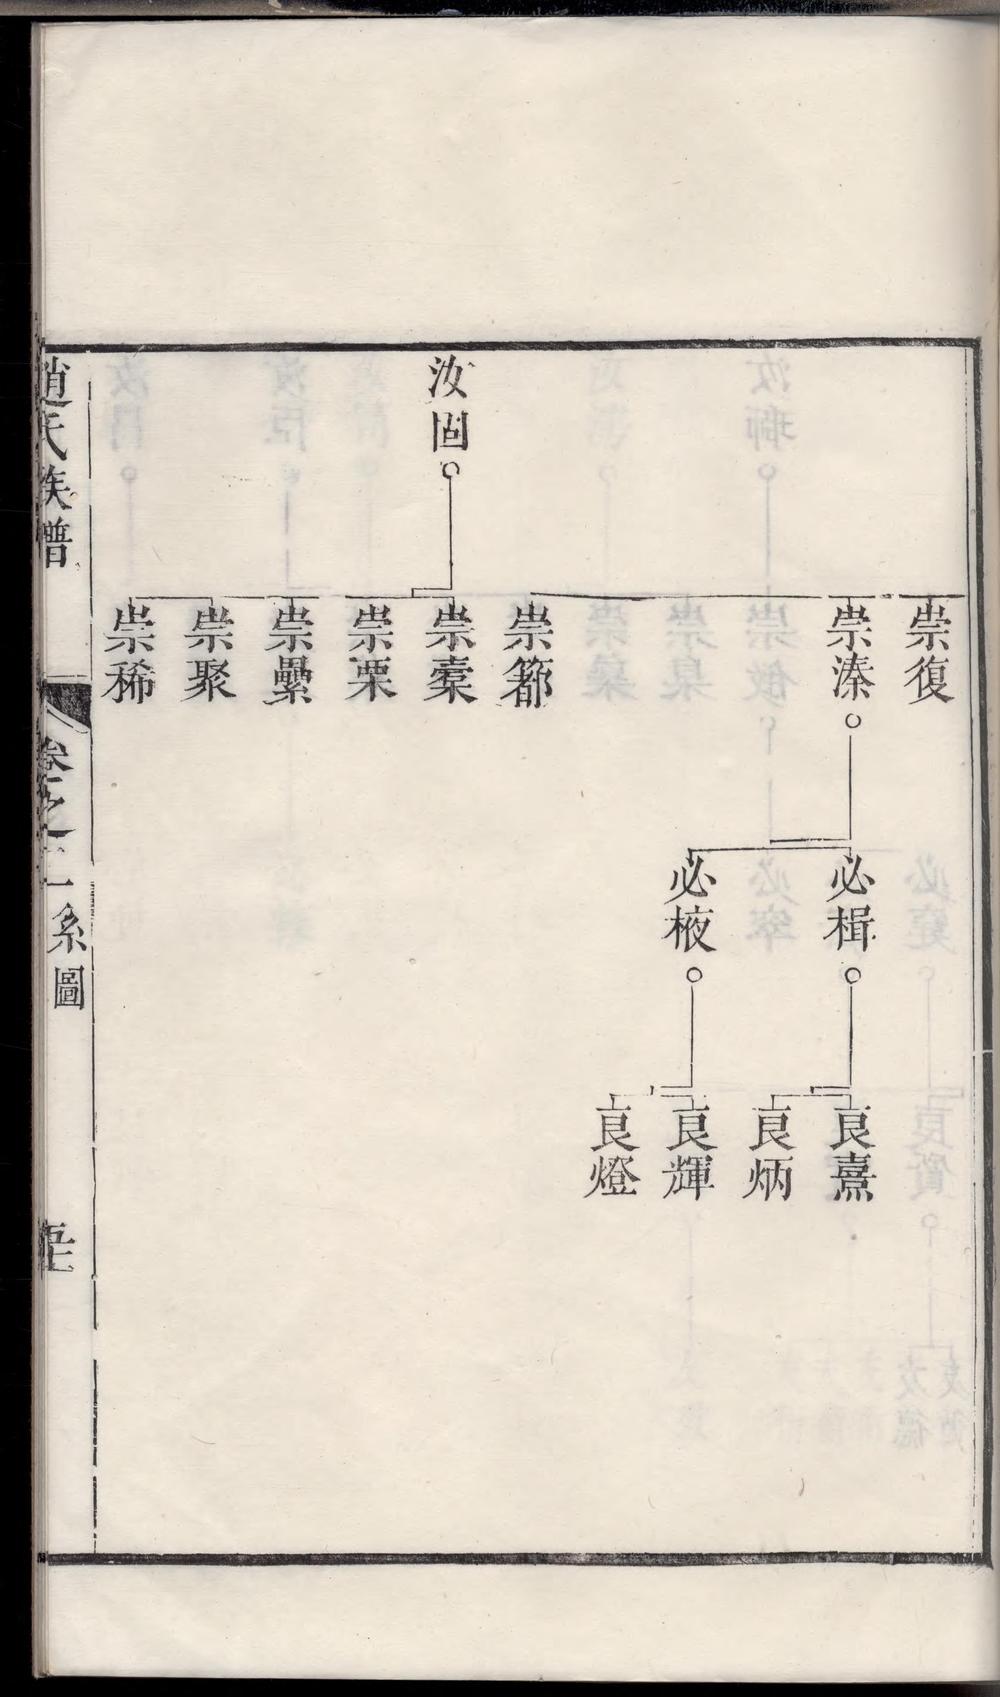 汝固
崇復
崇溱
崇簵
崇橐
崇栗
崇纍
崇聚
崇稀
必楫
必棭
良熹
良炳
良輝
良燈
趙氏族譜
卷之二
系圖